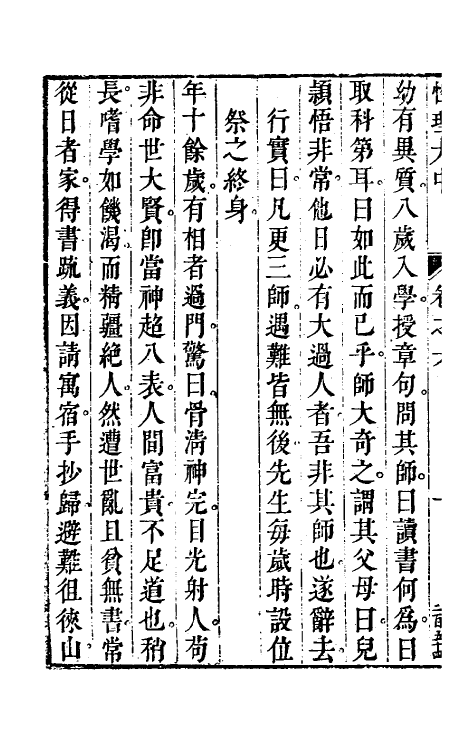 幼有異質八歲入學授章句問其師曰讀書何爲曰
取科第耳曰如此而已乎師大奇之謂其父母曰兒
頴悟非常他日必有大過人者吾非其師也遂辭去
行實曰凡更三師遇難皆無後先生每歲時設位
祭之終身
年十餘歲有相者過門驚曰骨清神完目光射人苟
非命世大賢卽當神超八表人間富貴不足道也稍
長嗜學如饑渴而精疆絶人然遭世亂且貧無書常
從日者家得書疏義因請寓宿手抄歸避難徂徠山